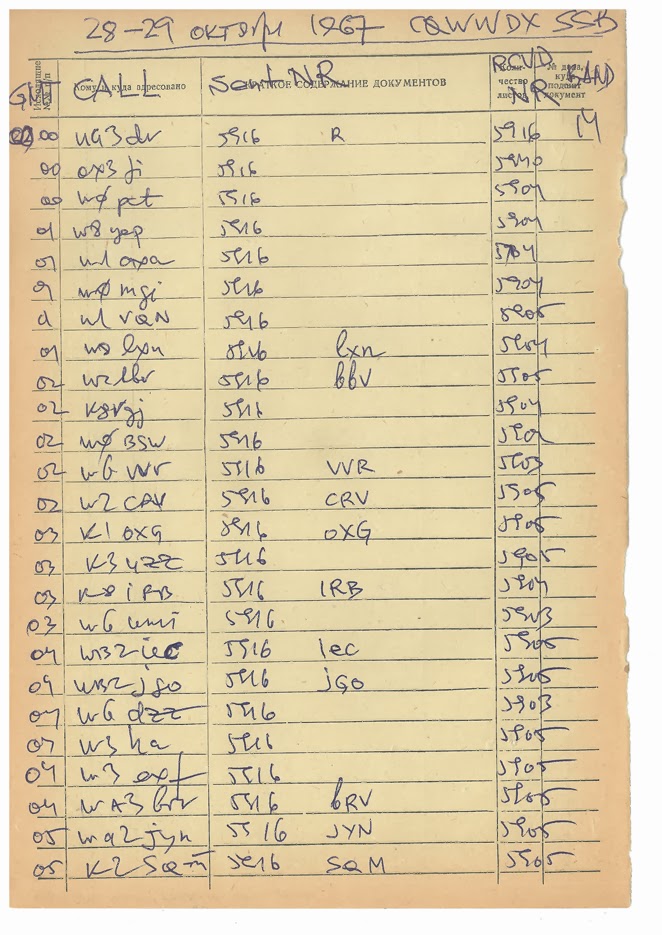 28-29 октября 1967 CQWWDX SSB
GMT CALL Sent NR RCVD NR BAND
Исходящие № п/п Кому и куда адресовано КРАТКОЕ СОДЕРЖАНИЕ ДОКУМЕНТОВ Количество листов № дела, куда подшит документ
00 00 ua3dv 5916 R 5916 14
00 ox3ji 5916 5940
00 wø pct 5916 5904
01 w8 yep 5916 5904
01 w1 oxa 5916 5904
wø mgi 5916 5904
w1 VQN 5916 5905
01 lxn 5916 lxn 5904
02 w2 5916 bbV 5905
02 5916 5904
02 wø BSW 5916
02 w6 vvr 5916 VVR 5903
02 w2 CRV 5916 CRV 5905
03 K1 OXG 5916 OXG 5905
03 K3 uzz 5916 5905
03 IRB 5916 IRB 5904
03 w6 umi 5916 5903
04 WB2 iec 5916 Iec 5905
04 WB2 jgo 5916 jGO 5905
04 w6 dzz 5916 5903
04 w3 ha 5916 5905
04 w3 5916 5905
04 WA3 brv 5916 bRV 5905
05 wa2 jyn 5916 JYN 5905
05 K2 SQM 5916 SQM 5905